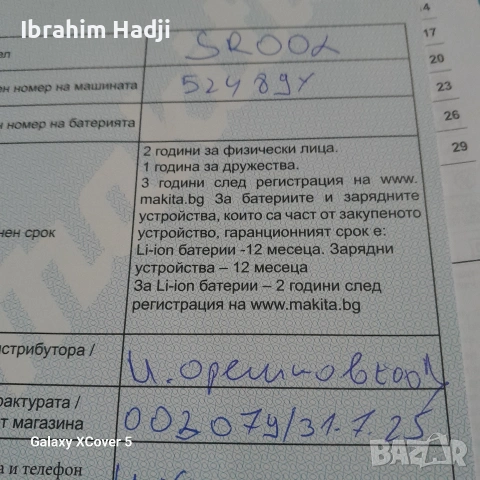 Ibrahim Hadji
SR00L
ен номер на машината
52489Y
н номер на батерията
2 години за физически лица.
1 година за дружества.
3 години след регистрация на www.
makita.bg За батериите и зарядните
устройства, които са част от закупеното
устройство, гаранционният срок е:
Li-ion батерии -12 месеца. Зарядни
устройства – 12 месеца
За Li-ion батерии – 2 години след
регистрация на www.makita.bg
нен срок
истрибутора /
рактурата /
т магазина
002079/31.7.25
Galaxy XCover 5
а и телефон
bazar
17
20
23
26
29